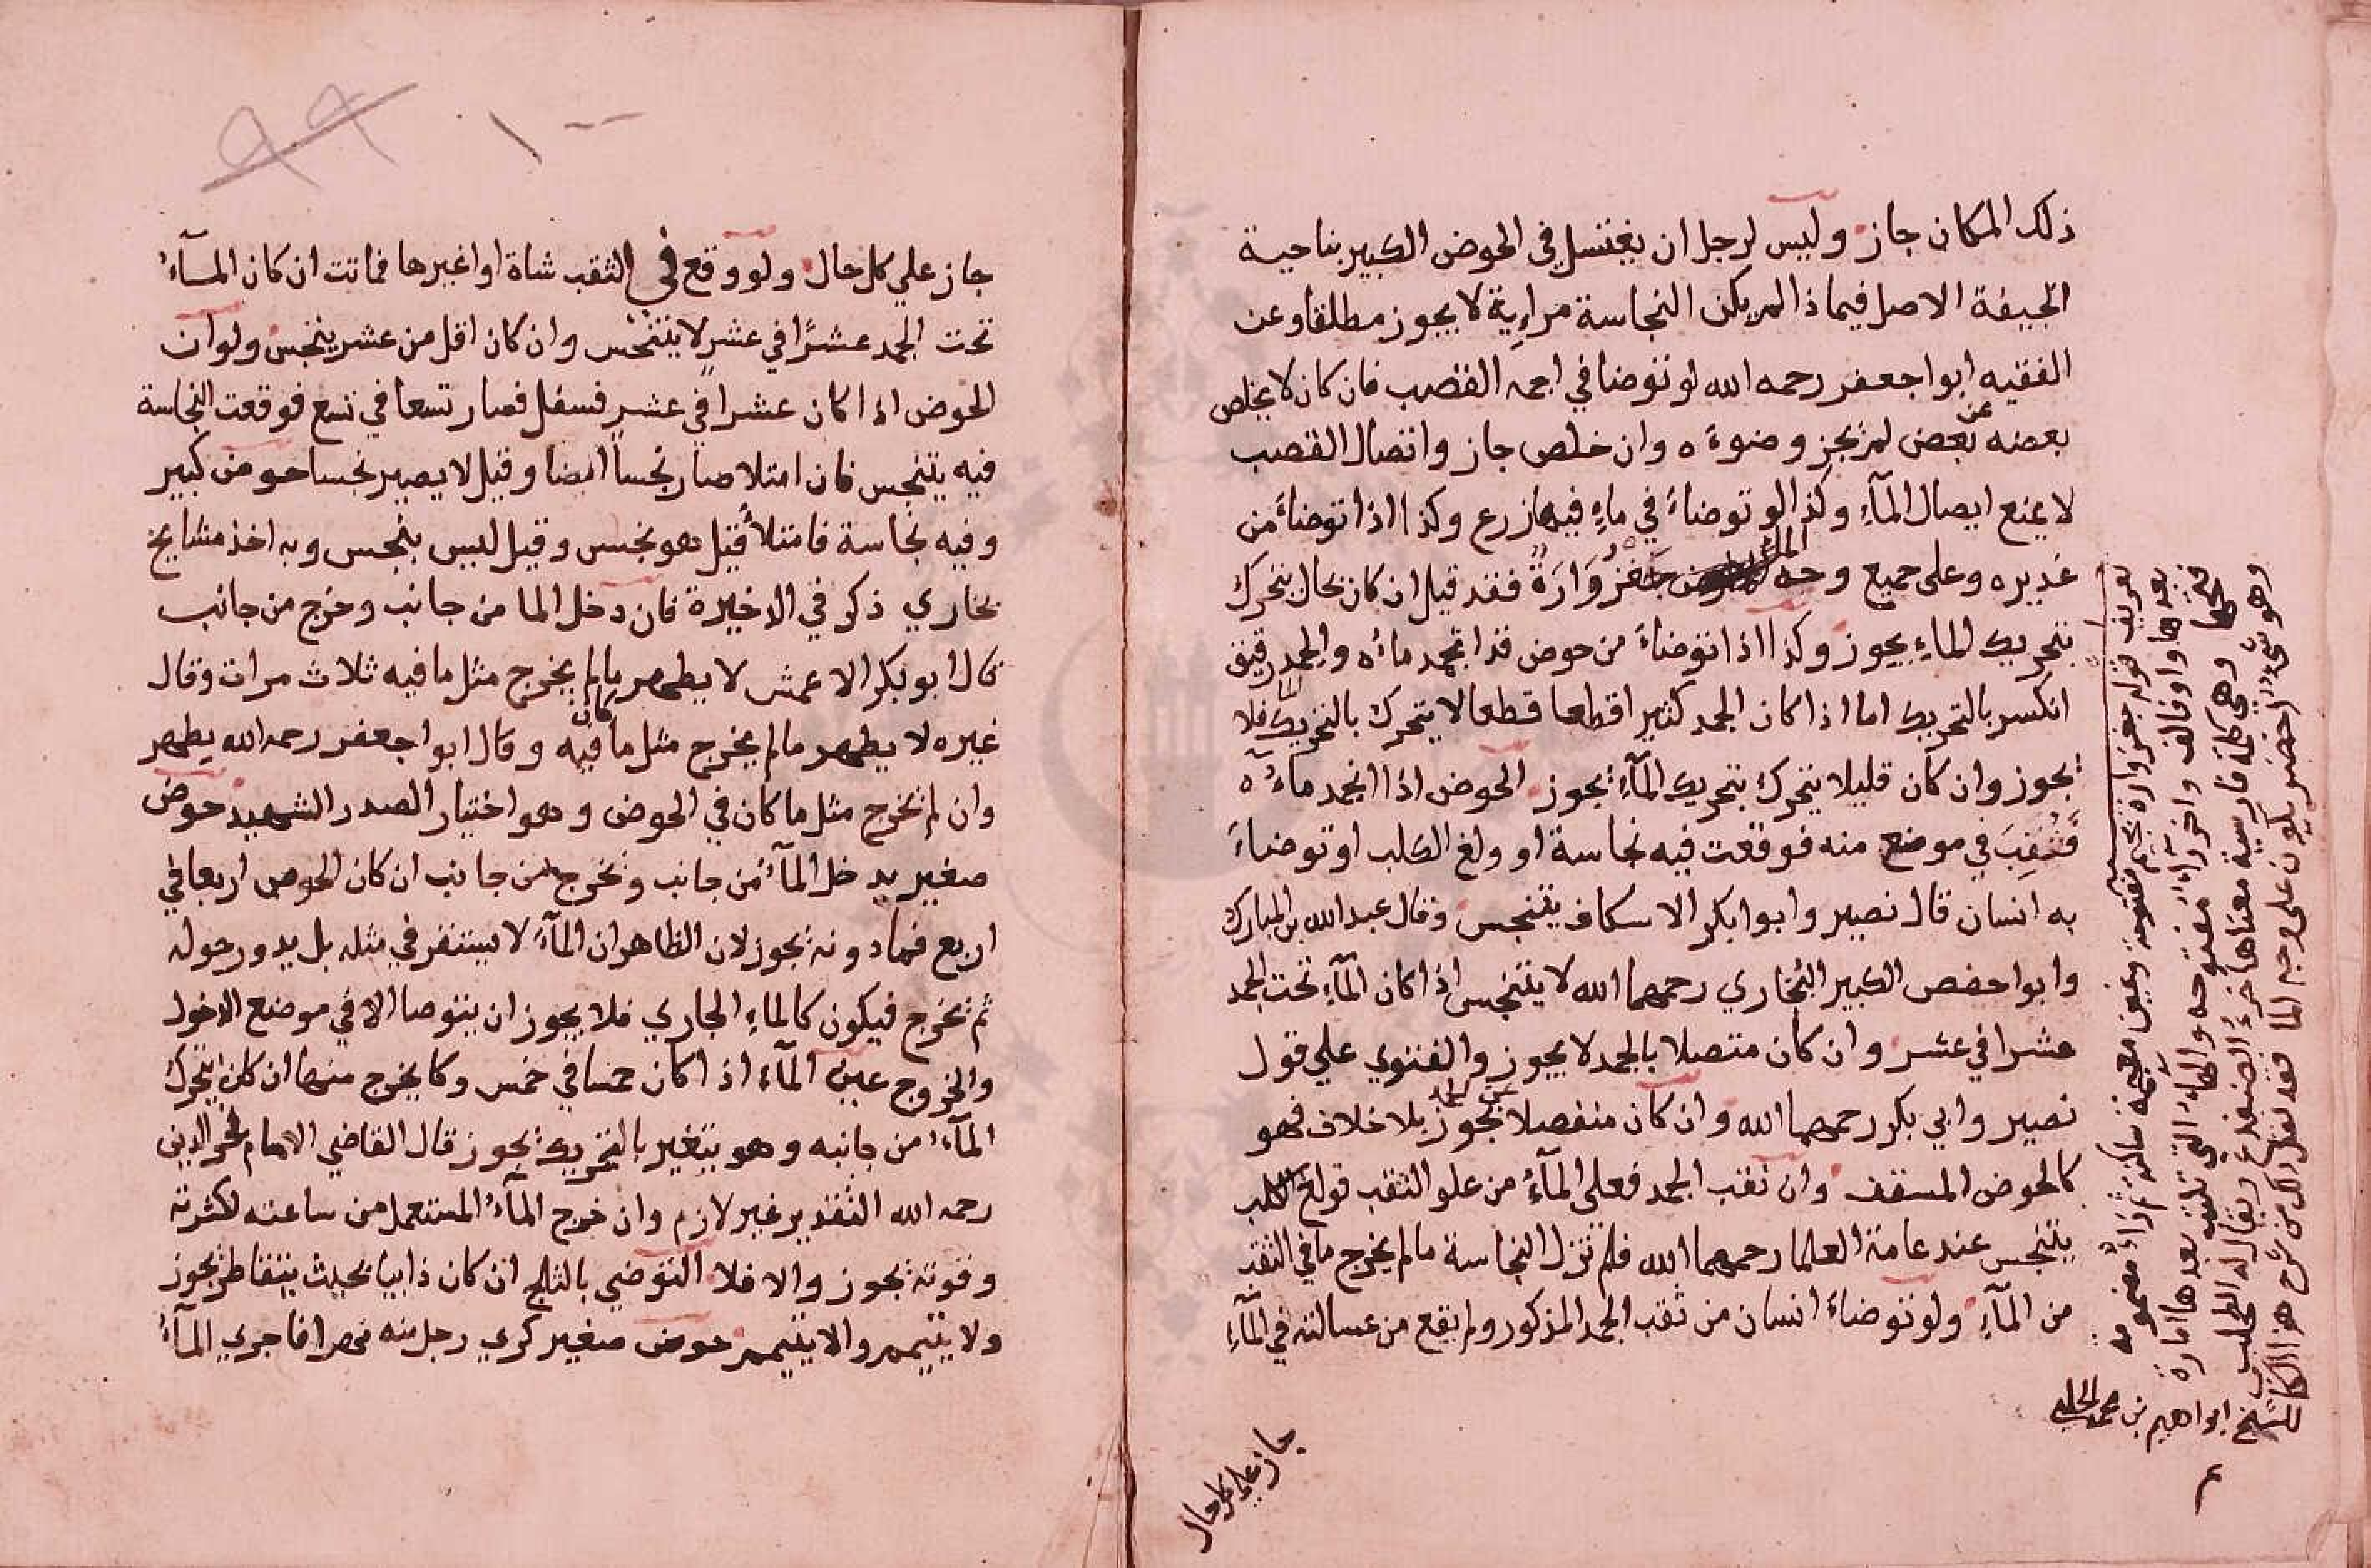 ذلك المكان جاز وليس لرجل ان يغتسل في الحوض الكبير بناحية
الجيفة الاصل فيماذا لم يكن النجاسة مراءية لا يجوز مطلقا وعن
الفقيه ابوا جعفر رحمه الله لو توضا في اجمه القصب فان كان لا يخلص
بعضه عن بعض لم يجز وضوءه وان خلص جاز واتصال القصب
لا يمنع ايصال المآءِ وكذا لو توضاءَ في ماءٍ فيها زرع وكذا اذا توضاءَ من
غديره وعلى جميع وجه الماء جَغْزُوَارَةٌ فقد قيل ان كان بحال يتحرك
بتحريك الماءِ يجوز وكذا اذا توضاءَ من حوض قد اتجمد ماءُه والجمد رقيق
انكسر بالتحريك اما اذا كان الجمد كثيرا قطعا قطعا لا يتحرك بالتحريك الما فلا
يجوز وان كان قليلا يتحرك بتحريك المآءِ يجوز الحوض اذا انجمد ماءُه
فَثُقِبَ في موضع منه فوقعت فيه نجاسة او ولغ الكلب او توضاءَ
به انسان قال نصير وابوا بكر الاسكاف يتنجس وقال عبد الله بن المبارك
وابوا حفص الكبير البُخاري رحمهما الله لا يتنجس اذا كان المآءِ تحت الجمد
عشرا في عشر وان كان متصلا بالجمد لا يجوز والفتوي علي قول
نصير وابي بكر رحمهما الله وان كان منفصلا عن الجمد يجوز بلا خلاف فهو
كالحوض المسقف وان ثقب الجمد فعلى المآءُ من علو الثقب فولغ الكلب
يتنجس عند عامة العلما رحمهما الله فلم تنزل النجاسة مالم يخرج ما في الثقب
من المآءِ ولو توضاءَ انسان من ثقب الجمد المذكور ولم يقع من غسالته في المآءِ
جاز علي كل حال
تعريف قوله جغزوارة بجيم مفتوحة وغين معجمة ساكنة ثم زاءٌ مضمومة
بعدها واو فالف واخر رآءٌ مفتوحه والهاء التي تكتب بعدها امارة
فتحها وهي كلمة فارسية معناها خرء الضفدع ويقال له الطحلب
وهو شيء اخضر يكون على وجه الما فقد نقل ذلك من شرح هذا الكتاب
للشيخ ابراهيم بن محمد الحلبي
٩٩
١٠٠
جاز علي كل حال ولو وقع في الثقب شاة او اغيرها فماتت ان كان المآءُ
تحت الجمد عشرًا في عشرٍ لا يتنجس وان كان اقل من عشر يتنجس ولو ان
الحوض اذا كان عشرا في عشرٍ فسفل فصار تسعا في تسع فوقعت النجاسة
فيه يتنجس فان امتلا صار نجساً ايضا وقيل لا يصير نجسا حوض كبير
وفيه نجاسة فامتلأ قيل هو نجس وقيل ليس بنجس وبه اخذ مشايخ
بخاري ذكر في الاخيرة فان دخل الما من جانب وخرج من جانب
قال ابو بكر الاعمش لا يطهر مالم يخرج مثل ما فيه ثلاث مرات وقال
غيره لا يطهر مالم يخرج مثل ما كان فيه وقال ابوا جعفر رحمه الله يطهر
وان لم يخرج مثل ما كان في الحوض وهو اختيار الصدر الشهيد حوض
صغير يدخل المآءُ من جانب ويخرج من جانب ان كان الحوض اربعا في
اربع فما دونه يجوز لان الظاهر ان المآءَ لا يستقر في مثله بل يدور حوله
ثم يخرج فيكون كالماءِ الجاري فلا يجوز ان يتوضا الا في موضع الدخول
والخروج عين المآءِ اذا كان خمسا في خمس وكا يخرج منها ان كان يتحرك
المآءُ من جانبه وهو يتغير بالتحريك يجوز قال القاضي الامام فخر الدين
رحمه الله التقدير غير لازم وان خرج المآءُ المستعمل من ساعته لكثرته
وقوته يجوز والا فلا التوضي بالثلج ان كان ذايبا بحيث يتقاطر يجوز
ولا يتيمم والا يتيمم حوض صغير كري رجل منه نهرا فاجري المآءُ